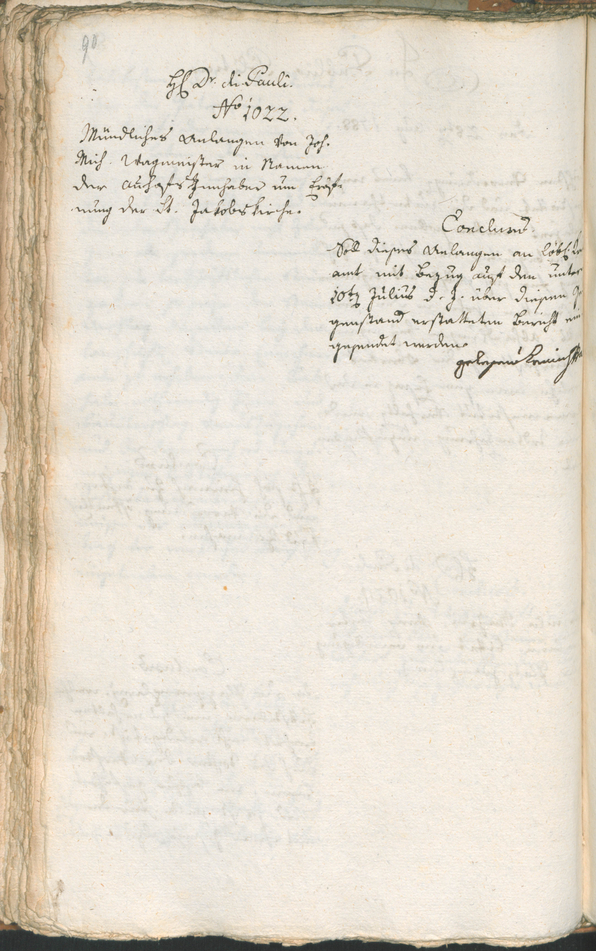 90
H. Dr. di Pauli.
No 1022.
Mündliches Anlangen von Joh.
Mich. Wagmeister in Namen
der Innhaber um Eröf-
nung der St. Jakobskirche.
Conclusum
Soll dieses Anlangen an löbl.
amt mit Bezug auf den unter
10ten Julius d. J. über diesen G
genstand erstatteten Bericht ein
gesendet werden.
gelesen